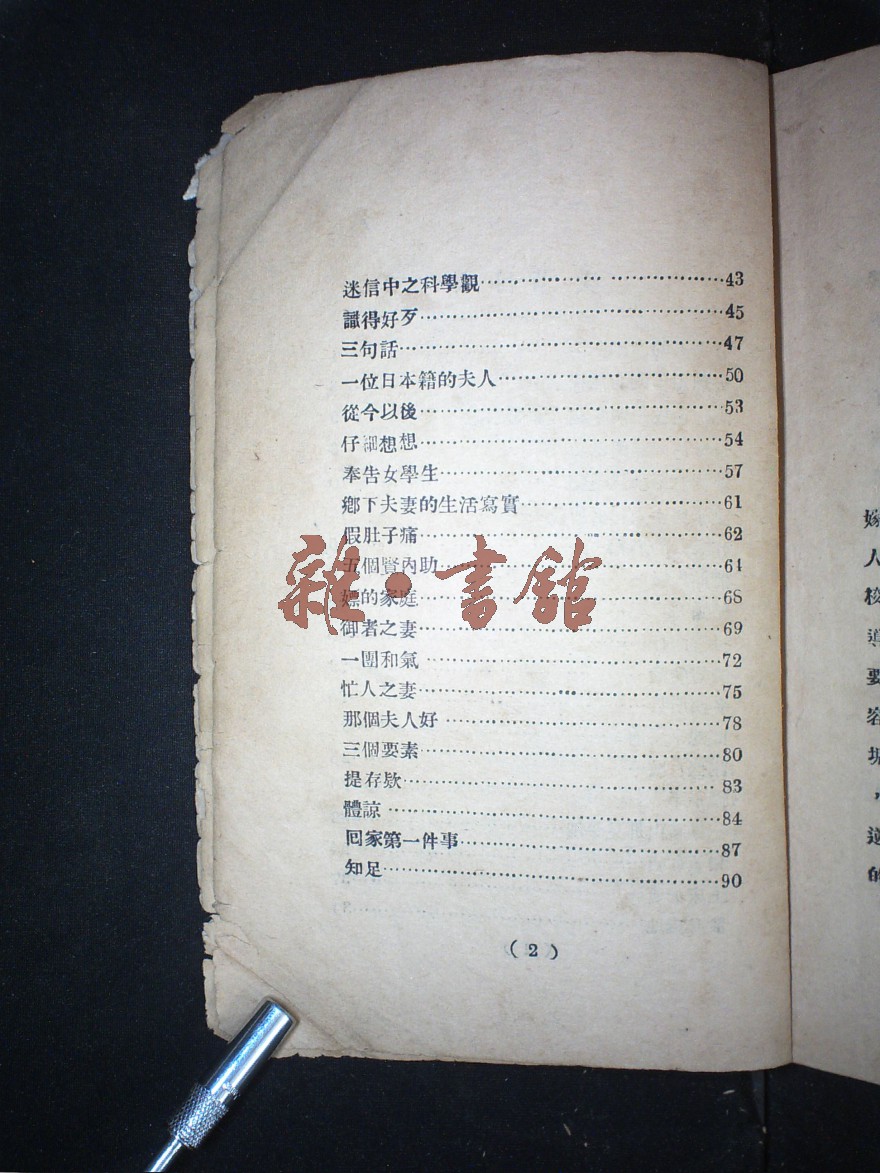 迷信中之科學觀……………………………43
識得好歹……………………………45
三句話……………………………47
一位日本籍的夫人……………………………50
從今以後……………………………53
仔細想想……………………………54
奉告女學生……………………………57
鄉下夫妻的生活寫實……………………………61
假肚子痛……………………………62
五個賢內助……………………………64
的家庭……………………………68
御者之妻……………………………69
一團和氣……………………………72
忙人之妻……………………………75
那個夫人好……………………………78
三個要素……………………………80
提存欵……………………………83
體諒……………………………84
回家第一件事……………………………87
知足……………………………90
(2)
雜·書館
人
要
，
的